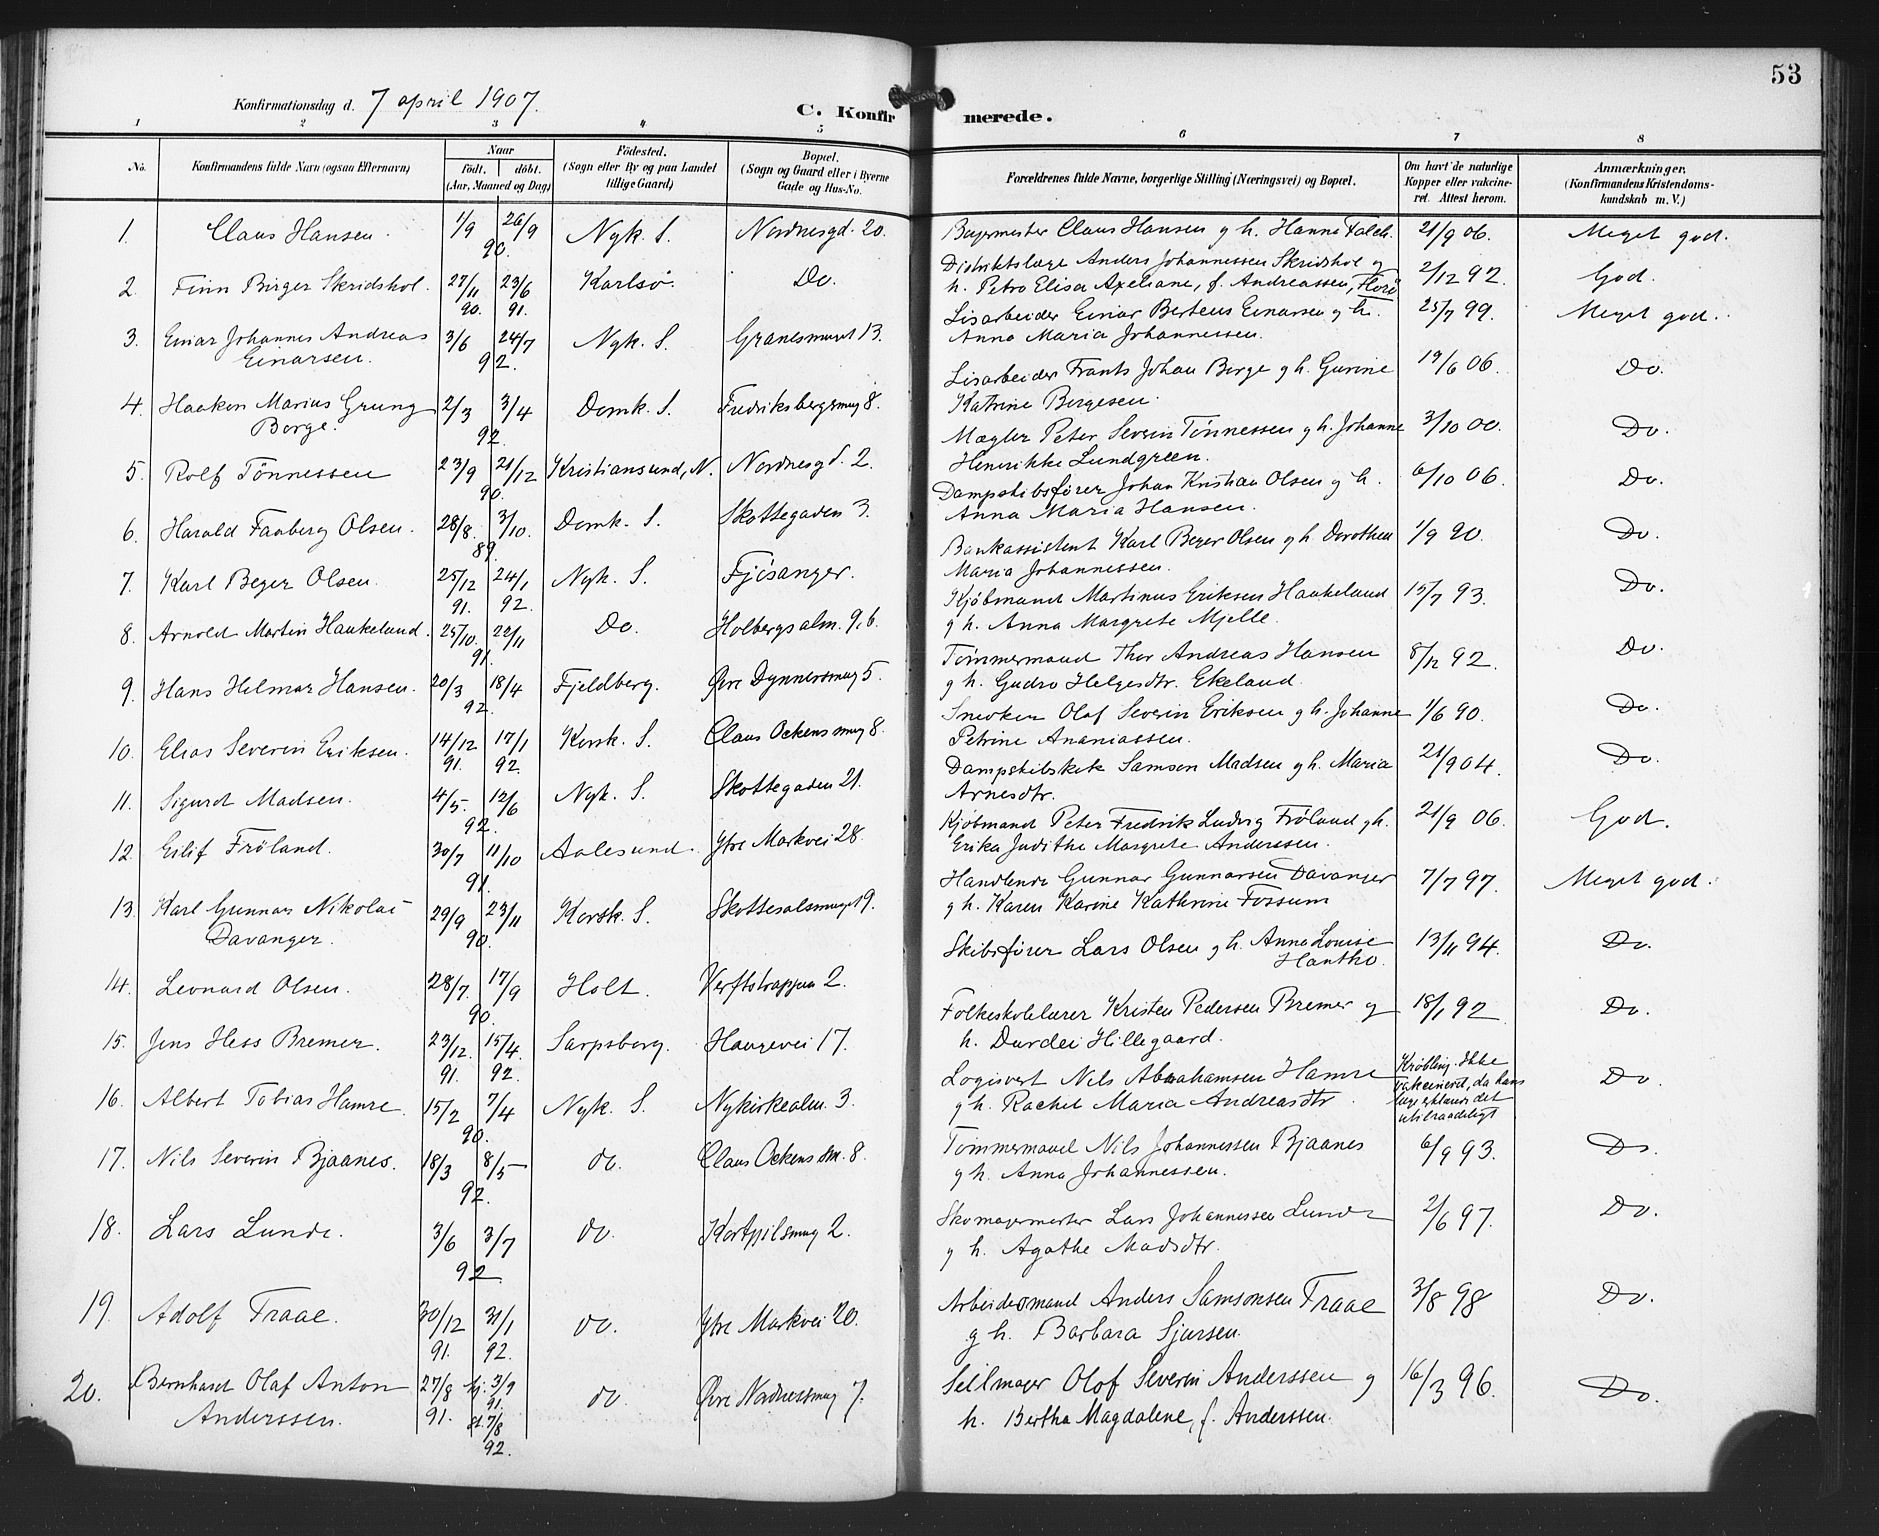 53
Konfirmationsdag d. 7 april 1907.
C. Konfirmerede.
1 2 3 4 5 6 7 8
No. Konfirmandens fulde Navn (ogsaa Efternavn) Naar født. døbt. (Aar, Maaned og Dag) Fødested. (Sogn eller By og paa Landet tillige Gaard) Bopæl. (Sogn og Gaard eller i Byerne Gade og Hus-No. Forældrenes fulde Navne, borgerlige Stilling (Næringsvei) og Bopæl. Om havt de naturlige Kopper eller vakcineret. Attest herom. Anmærkninger. (Konfirmandens Kristendomskundskab m. V.)
1. Claus Hansen. 1/9 26/9 90. Nyk. S. Nordnesgd. 20. Bagermester Claus Hansen g h. Hanna Falch. 21/9 06. Meget god.
2. Finn Birger Skridshol. 27/11 90. 23/6 91. Karlsø. Do. Distriktslæge Anders Johannessen Skridshol og
h. Petra Elisa Axeliane, f. Andreassen, Florø 2/12 92. God.
3. Einar Johannes Andreas Einarsen. 3/6 24/7 92. Nyk. S. Granesmuget 13. Lisarbeider Einar Berteus Einarsen g h.
Anna Maria Johannessen. 25/7 99. Meget god.
4. Haakon Marius Grung Borge. 2/3 3/4 92. Domk. S. Fredriksbergsmug 8. Lisarbeider Frants Johan Borge g h. Gurine
Katrine Borgesen. 19/6 06. Do.
5. Rolf Tönnessen 23/9 21/12 90. Kristiansund, N. Nordnesgd. 2. Mægler Peter Severin Tönnessen g h. Johanne
Henrikke Lundgreen. 3/10 00. Do.
6. Harald Faaberg Olsen. 28/8. 3/10. 89. Domk. S. Skottegaden 3. Dampskibsfører Johan Kristian Olsen g h.
Anna Maria Hansen. 6/10 06. Do.
7. Karl Beyer Olsen. 25/12 91. 24/1 92. Nyk. S. Fjösanger. Bankassistent Karl Beyer Olsen g h. Dorothea
Maria Johannessen. 1/9 20. Do.
8. Arnold Martin Haukeland. 25/10. 22/11 91. Do. Holbergsalm. 9,6. Kjöbmand Martinus Eriksen Haukeland
g h. Anna Margrete Mjelle. 15/7 93. Do.
9. Hans Hilmar Hansen. 20/3 18/4 92. Fjeldberg. Øvre Dynnersmug 5. Tömmermand Thor Andreas Hansen
g h. Gudro Helgesdtr. Ekeland. 8/12 92. Do.
10. Elias Severin Eriksen. 14/12 91. 17/1 92. Korsk. S. Claus Ockens smug 8. Snedker Olaf Severin Eriksen g h. Johanne
Petrine Ananiassen. 1/6 90. Do.
11. Sigurd Madsen. 4/5. 12/6 92. Nyk. S. Skottegaden 21. Dampskibskok Samson Madsen g h. Maria
Arnesdtr. 21/9 04. Do.
12. Eilif Fröland. 30/7 11/10 91. Aalesund. Ytre Markvei 28. Kjöbmand Peter Fredrik Ludvig Fröland g h.
Erika Judithe Margrete Anderssen. 21/9 06. God.
13. Karl Gunnar Nikolai Davanger. 29/9 23/11 90. Korsk. S. Skottesalsmuget 9. Handlende Gunnar Gunnarsen Davanger
g h. Karen Karine Kathrine Fossum 7/7 97. Meget god.
14. Leonard Olsen. 28/7. 17/9 90. Holt. Verftstrappen 2. Skibsfører Lars Olsen g h. Anna Louise
Hantho. 13/11 94. Do.
15. Jens Hess Bremer. 23/12. 91. 15/4. 92. Sarpsborg. Haugevei 17. Folkeskolelærer Kristen Pedersen Bremer og
h. Durdei Hillegaard. 18/1 92 Do.
16. Albert Tobias Hamre. 15/2 7/4 90. Nyk. S. Nykirkealm. 3. Logisvert Nils Abrahamsen Hamre
g h. Rachel Maria Andreasdtr. Kröbling. Ikke
vakcineret, da hans
læge erklærer det
utilraadeligt Do.
17. Nils Severin Bjaanes. 18/3 8/5 92. do. Claus Ockens sm. 8. Tömmermand Nils Johannessen Bjaanes
g h. Anna Johannessen. 6/9 93. Do.
18. Lars Lunde. 3/6 3/7 92 do. Kortpilsmug 2. Skomagermester Lars Johannessen Lunde
g h. Agathe Madsdtr. 2/6 97. Do.
19. Adolf Traae. 30/12 91. 31/1 92. do. Ytre Markvei 20. Arbeidsmand Anders Samsonsen Traae
g h. Barbara Sjursen. 3/8 98 Do.
20. Bernhard Olaf Anton Anderssen. 27/8 91. hj. 3/9 91. st. 7/8 92. do. Øvre Nordnessmug 7. Seilmager Olaf Severin Anderssen og
h. Bertha Magdalene, f. Anderssen. 16/3 96. Do.